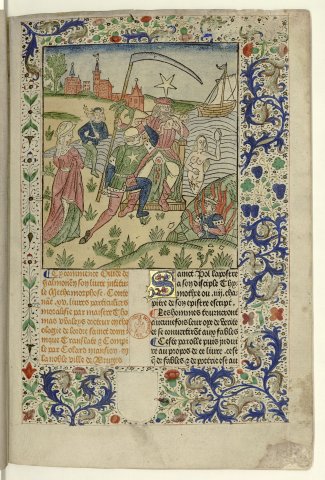 Cy commence Ovide de
salmonen son livre intitule
Methamorphose. Conte
nãt .xv. livres particuliers
moralisie par maistre Tho
mas waleys docteur en theo
logie de lordre sainct domi
nique Translate et Compi
le par Colard mansion en
la noble ville de Bruges
Sainct Pol lapostre
a son disciple Thy
mothee ou .iiij. cha
pitre de son epistre escript.
les hommes tourneront
aucunefois leur oye de verite
et se convertiront aux fables
Ceste parolle puis indui
re au propos de ce livre. cest
de fables et de poetrie est au